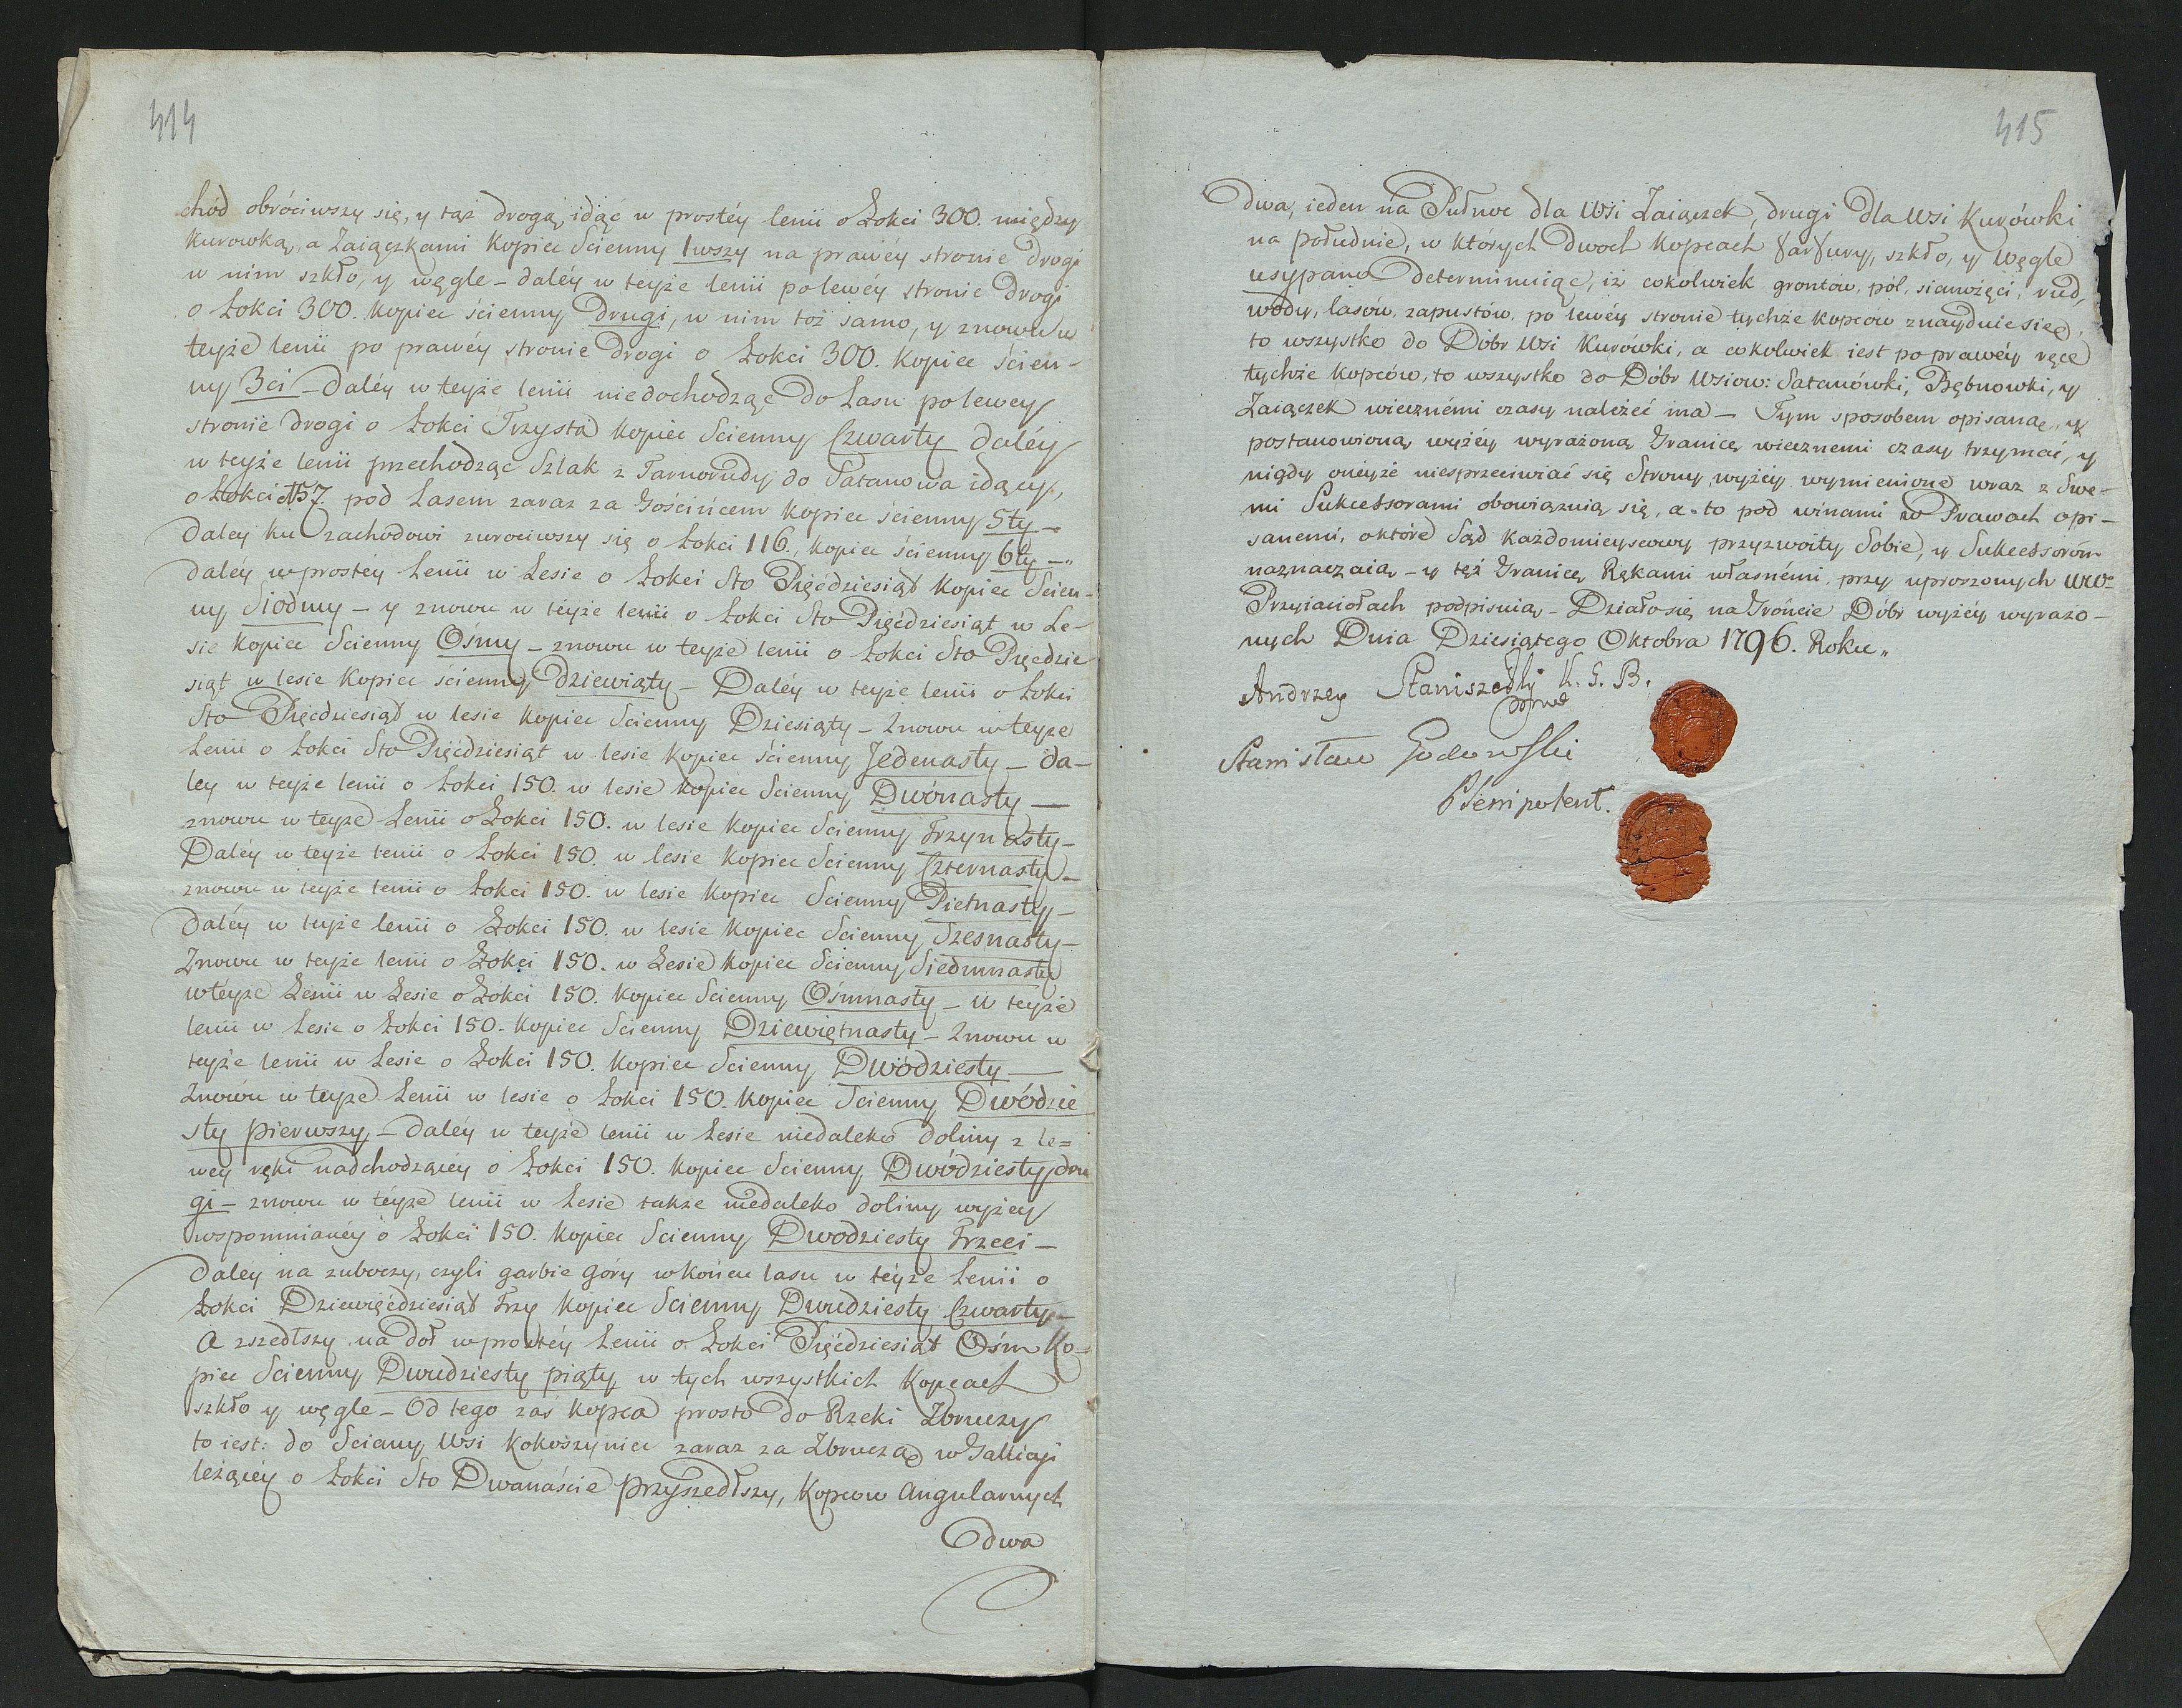 414
chód obróciwszy się, y tąż drogą, idąc w prostéy lenii o Łokci 300. między
Kurowką, a Zaiączkami Kopiec Scienny 1wszy na prawéy stronie drogi
w nim szkło, y węgle – daléy w teyże lenii po lewéy stronie Drogi
o Łokci 300. Kopiec ścienny drugi, w nim toż samo, y znowu w
teyże lenii po prawéy stronie Drogi o Łokci 300. Kopiec ścien-
ny 3ci – Daléy w teyże lenii niedochodząc do Lasu po lewey
stronie drogi o Łokci Trzysta Kopiec Scienny Czwarty daléy
w teyże lenii przechodząc Szlak z Tarnorudy do Satanowa idący,
o Łokci 157. pod Lasem zaraz za Gościńcem Kopiec ścienny 5ty –
daley ku zachodowi zwrociwszy się o Łokci 116., Kopiec ścienny 6ty –„
daley w prostéy Lenii w Lesie o Łokci Sto Pięćdziesiąt Kopiec Scien-
ny Siodmy – y znowu w teyże lenii o Łokci Sto Pięćdziesiąt w Le-
sie Kopiec Scienny Ósmy – znowu w teyże lenii o Łokci Sto Pięćdzie
siąt w lesie Kopiec ścienny dziewiąty – Daléy w teyże lenii o Łokci
Sto Pięćdziesiąt w lesie Kopiec Scienny Dziesiąty – Znowu w teyże
Lenii o Łokci Sto Pięćdziesiąt w lesie Kopiec ścienny Jedenasty – da-
ley w teyże lenii o Łokci 150. w lesie Kopiec Scienny Dwónasty –
znowu w teyże Lenii o Łokci 150. w lesie Kopiec Scienny Trzynasty –
Daléy w teyże lenii o Łokci 150. w lesie Kopiec Scienny Czternasty –
znowu w teyże lenii o Łokci 150. w lesie Kopiec Scienny Pietnasty –
daléy w teyże lenii o Łokci 150. w lesie Kopiec Scienny Szesnasty –
Znowu w teyże lenii o Łokci 150. w Lesie Kopiec Scienny Siedmnasty
w téyże Lenii w Lesie o Łokci 150. Kopiec Scienny Ośmnasty – w teyże
lenii w Lesie o Łokci 150. Kopiec Scienny Dziewiętnasty – Znowu w
teyże lenii w Lesie o Łokci 150. Kopiec Scienny Dwódziesty –
Znowu w teyże Lenii w lesie o Łokci 150. Kopiec Scienny Dwódzie
sty pierwszy – daléy w teyże lenii w Lesie niedaleko doliny z le=
wey ręki nadchodzącéy o Łokci 150. Kopiec Scienny Dwódziesty dru
gi – znowu w téyże lenii w Lesie także niedaleko doliny wyżéy
wspomnianéy o Łokci 150. Kopiec Scienny Dwodziesty Trzeci –
daley na zuboczy, czyli garbie góry w końcu lasu w téyże Lenii o
Łokci Dziewięćdziesiąt Trzy Kopiec Scienny Dwudziesty Czwarty –
A zszedłszy na doł w prostéy Lenii o Łokci Pięćdziesiąt Ośm Ko-
piec Scienny Dwudziesty piąty w tych wszystkich Kopcach
szkło y węgle – Od tego zaś Kopca prosto do Rzeki Zbruczy
to iest: do Sciany Wsi Kokoszyniec zaraz za Zbruczą w Gallicyi
leżącéy o Łokci Sto Dwanaście przyszedłszy, Kopcow Angularnych
dwa
415
Dwa, ieden na Pułnoc dla Wsi Zaiączek, drugi dla Wsi Kurówki
na południe, w których dwoch Kopcach farfury, szkło, y węgle
usypano determinuiąc, iż cokolwiek grontów, pól, sianożęci, rud,
wody, lasów, zapustów, po lewéy stronie tychże Kopców znayduie się,
to wszystko do Dóbr Wsi Kurówki, a cokolwiek iest po prawéy ręce
tychże Kopców, to wszystko do Dóbr Wsiow: Satanówki, Bębnowki, y
Zaiączek wiecznémi czasy należeć ma – Tym sposobem opisaną, y
postanowioną, wyżéy wyrażoną Granicę wiecznemi czasy trzymać, y
nigdy oneyże niesprzeciwiać się Strony wyżéy wymienione wraz z Swe-
mi Sukcessorami obowiązuią się, a to pod winami w Prawach opi-
sanemi, o które Sąd każdomieyscowy przyzwoity Sobie, y Sukcessorom
naznaczaią – y tęż Granicę Rękami własnémi, przy uproszonych WW:
Przyiaciołach podpisuią – Działo się na Gróncie Dóbr wyżéy wyrażo-
nych Dnia Dziesiątego Oktobra 1796. Roku„
Andrzey K. G. B.
Stanisław Godowski
Plenipotent.